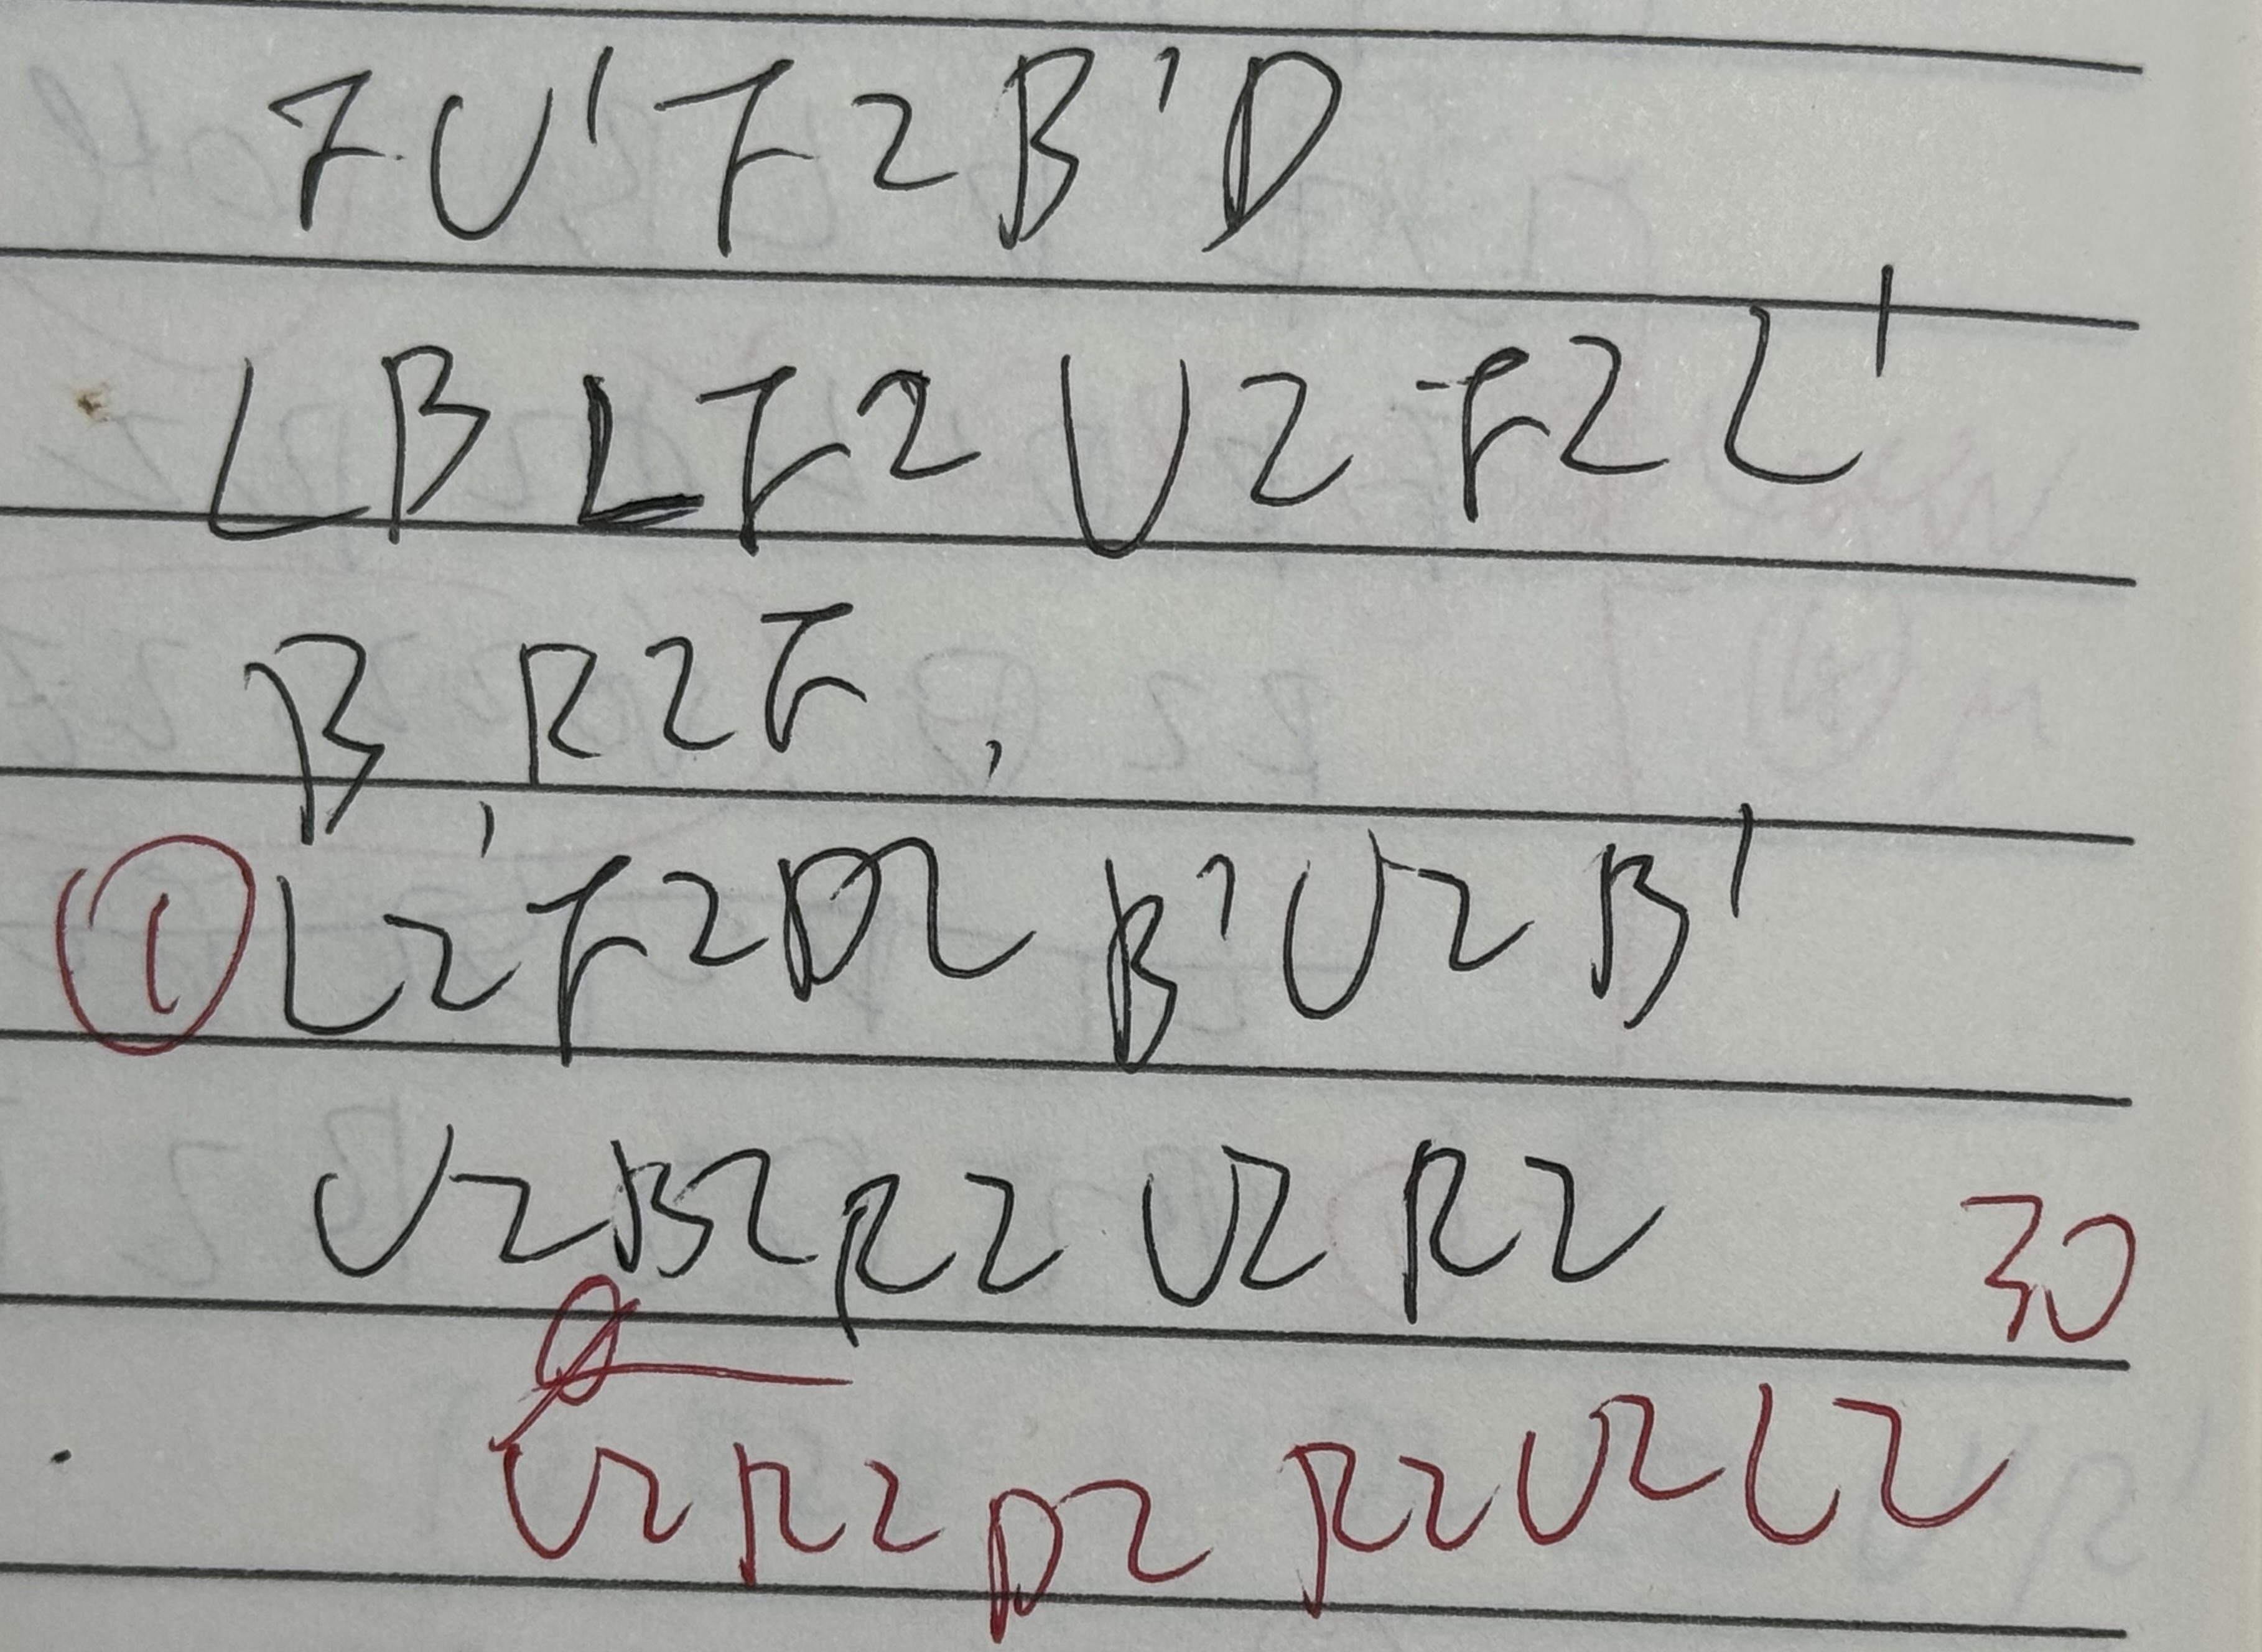 F U' F2 B' D
L B L F2 U2 F2 L'
B R2 F ,
① L2' F2 D2 B' U2 B'
U2 B2 R2 U2 R2 30
U2 R2 D2 R2 U2 L2